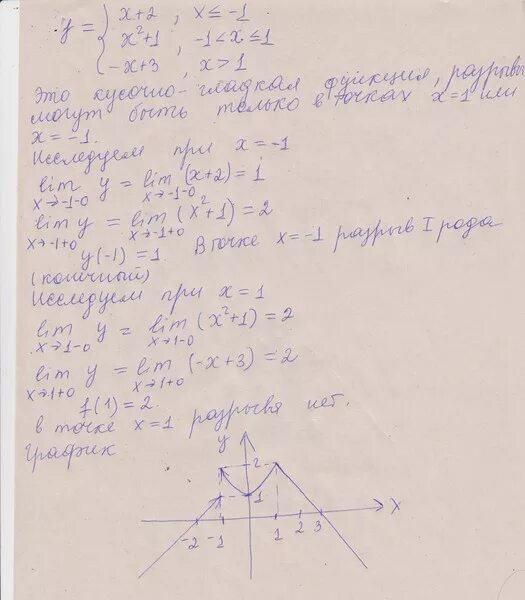 y = { x+2 , x ≤ -1
x²+1 , -1<x≤1
-x+3 , x>1
Это кусочно-гладкая функция, разрывы
могут быть только в точках x=1 или
x=-1.
Исследуем при x=-1
lim y = lim (x+2) = 1
x→-1-0 x→-1-0
lim y = lim (x²+1) = 2
x→-1+0 x→-1+0
y(-1) = 1. В точке x=-1 разрыв I рода
(конечный)
Исследуем при x=1
lim y = lim (x²+1) = 2
x→1-0 x→1-0
lim y = lim (-x+3) = 2
x→1+0 x→1+0
f(1) = 2.
в точке x=1 разрывя нет.
График
y
2
1
x
-2 -1 1 2 3